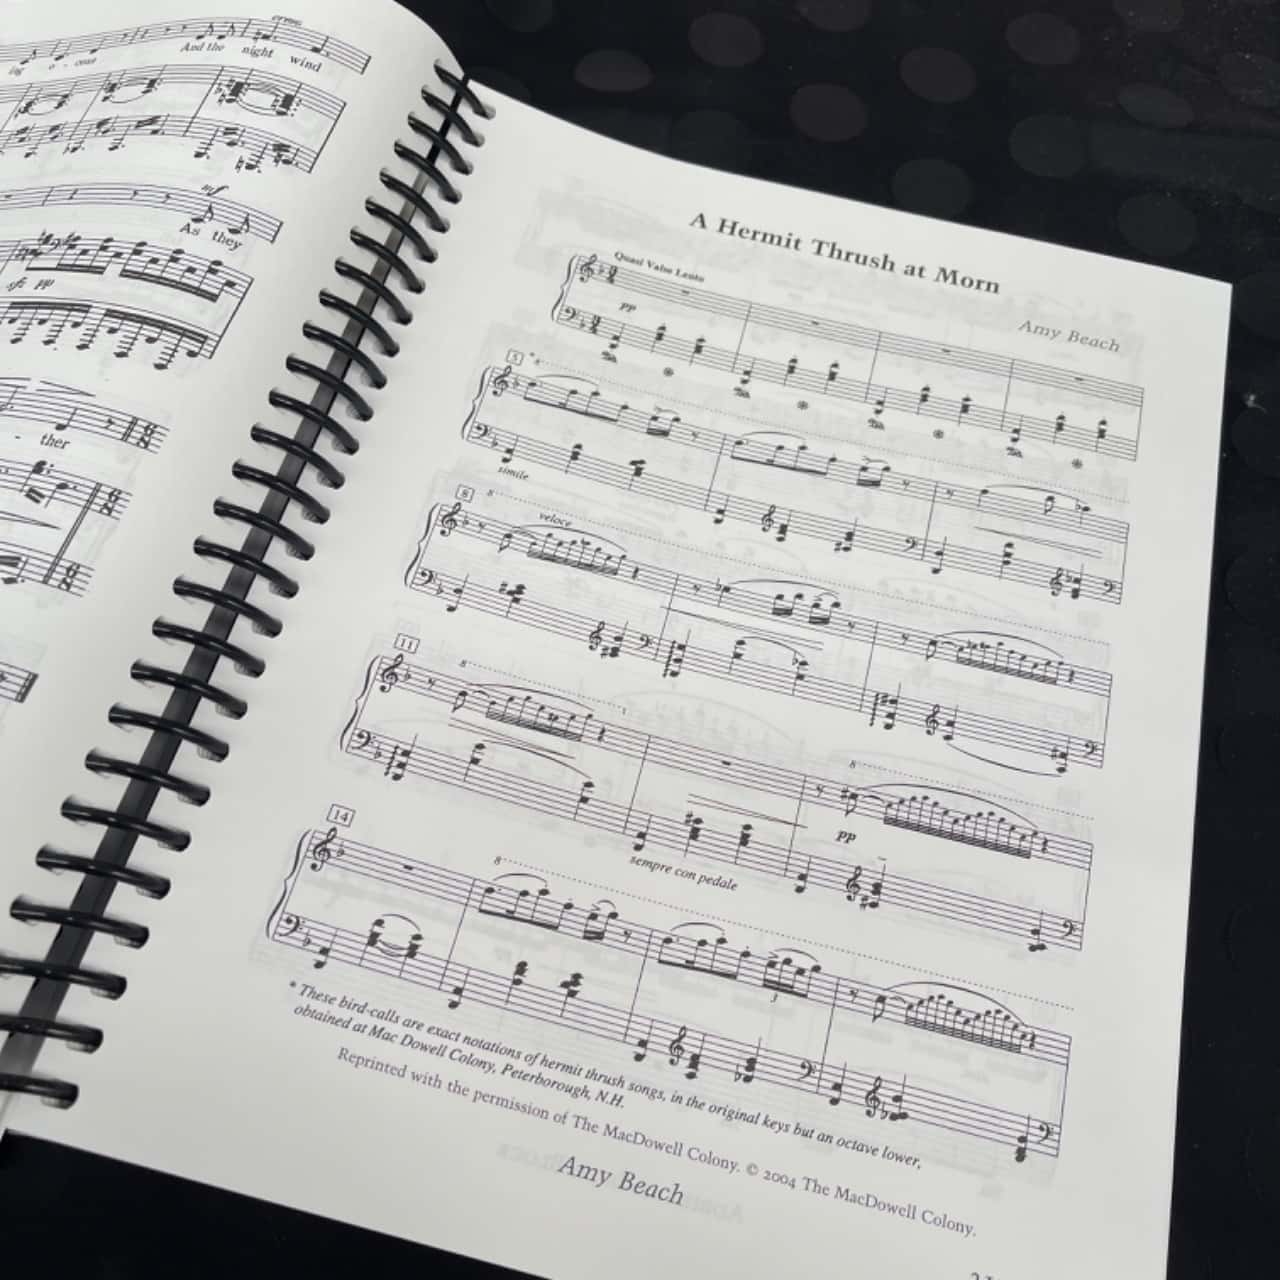 cresc.
ing o - cous And the night wind
mf
As they
sfz pp
ther
6 8
6 8
6 8
A Hermit Thrush at Morn
Amy Beach
Quasi Valse Lento
pp
5
* 8
simile
8
8
veloce
11
8
8
pp
sempre con pedale
14
8
3
* These bird-calls are exact notations of hermit thrush songs, in the original keys but an octave lower,
obtained at Mac Dowell Colony, Peterborough, N.H.
Reprinted with the permission of The MacDowell Colony. © 2004 The MacDowell Colony.
Amy Beach